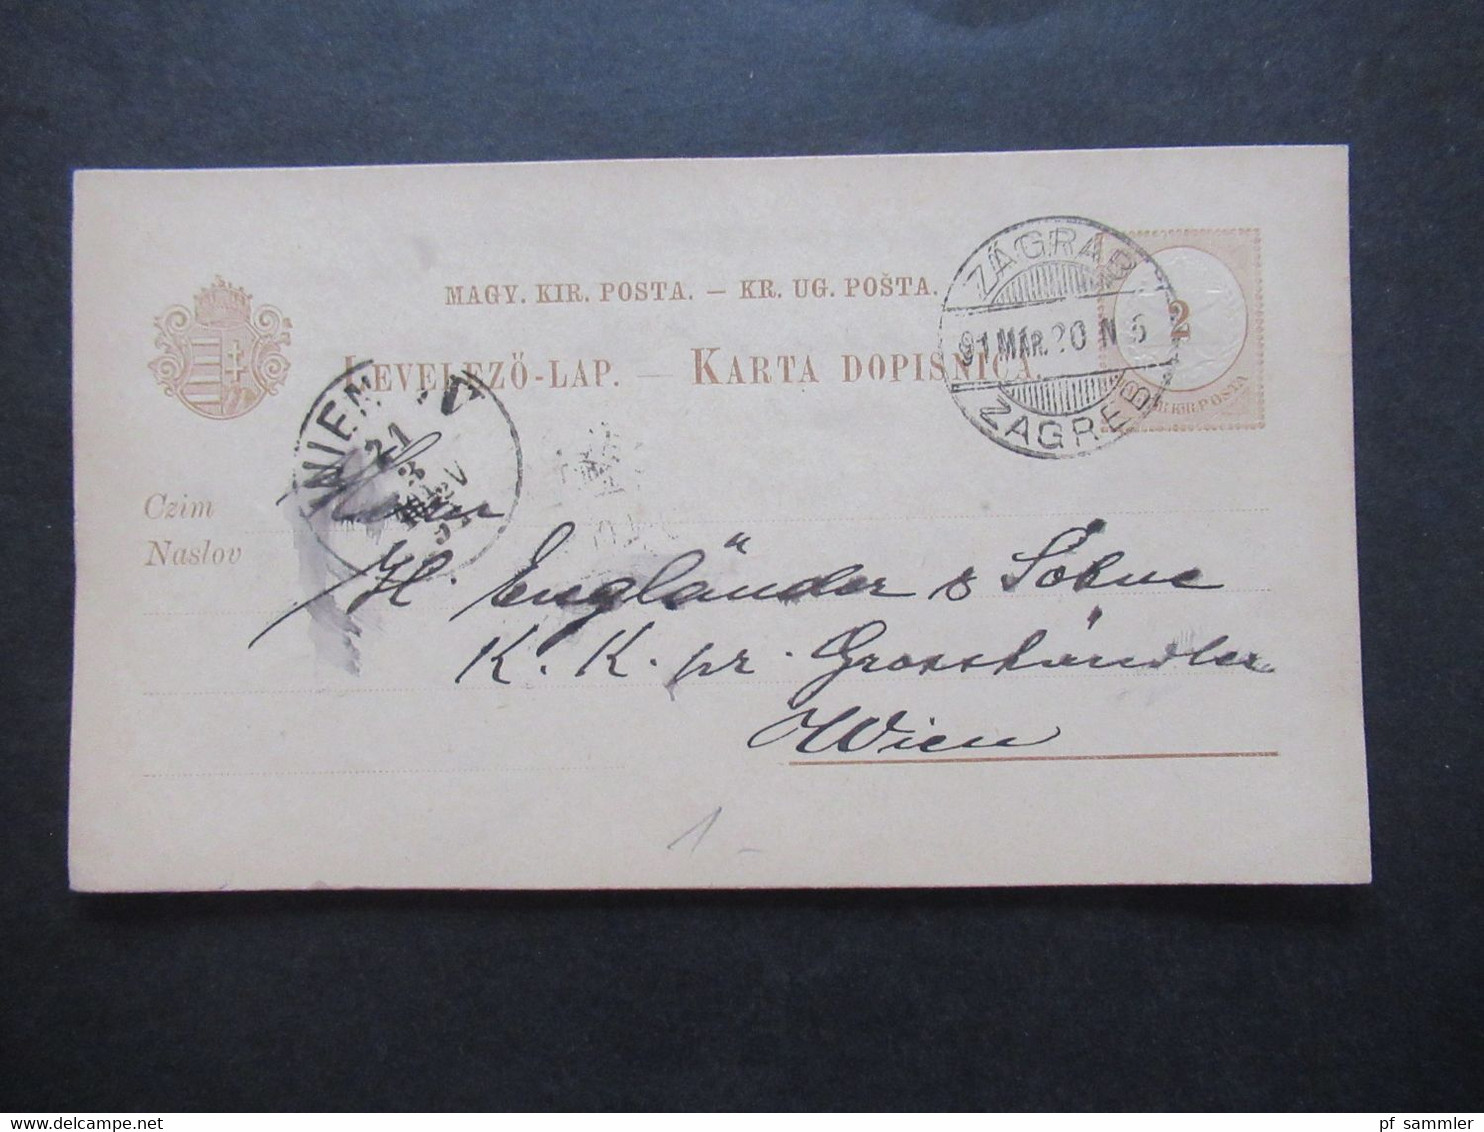 MAGY. KIR. POSTA. — KR. UG. POŠTA.
LEVELEZŐ-LAP. — KARTA DOPISNICA.
ZÁGRÁB
91 MÁR. 20 N 5
ZAGREB
2
MAGYAR KIR. POSTA
WIEN
21
3
Czim
Naslov
Herren
H. Engländer & Söhne
K. K. pr. Grosshändler
Wien
1-
pf_sammler